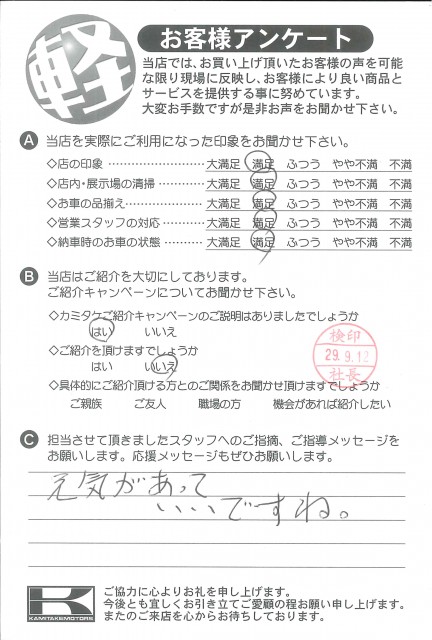 軽
お客様アンケート
当店では、お買い上げ頂いたお客様の声を可能
な限り現場に反映し、お客様により良い商品と
サービスを提供する事に努めています。
大変お手数ですが是非お声をお聞かせ下さい。
A 当店を実際にご利用になった印象をお聞かせ下さい。
◇店の印象 ………………………… 大満足 満足 ふつう やや不満 不満
◇店内・展示場の清掃 ………… 大満足 満足 ふつう やや不満 不満
◇お車の品揃え………………… 大満足 満足 ふつう やや不満 不満
◇営業スタッフの対応 ………… 大満足 満足 ふつう やや不満 不満
◇納車時のお車の状態 ………… 大満足 満足 ふつう やや不満 不満
B 当店はご紹介を大切にしております。
ご紹介キャンペーンについてお聞かせ下さい。
◇カミタケご紹介キャンペーンのご説明はありましたでしょうか
はい いいえ
◇ご紹介を頂けますでしょうか
はい いいえ
検印
29.9.12
社長
◇具体的にご紹介頂ける方とのご関係をお聞かせ頂けますでしょうか
ご親族 ご友人 職場の方 機会があれば紹介したい
C 担当させて頂きましたスタッフへのご指摘、ご指導メッセージを
お願いします。応援メッセージもぜひお願いします。
元気があって
いいですね。
K
KAMITAKEMOTORS
ご協力に心よりお礼を申し上げます。
今後とも宜しくお引き立てご愛顧の程お願い申し上げます。
またのご来店を心からお待ちしております。